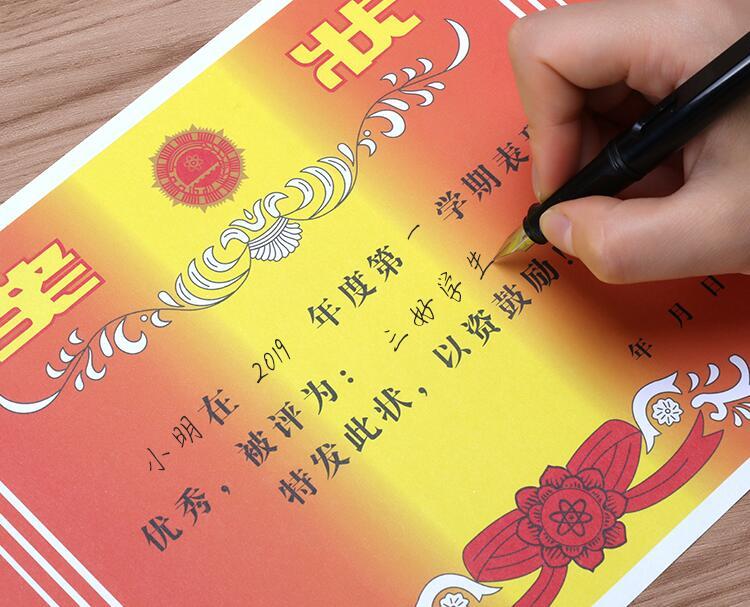 奖状
小明在2019年度第一学期表
优秀，被评为：三好学生
特发此状，以资鼓励！
年月日